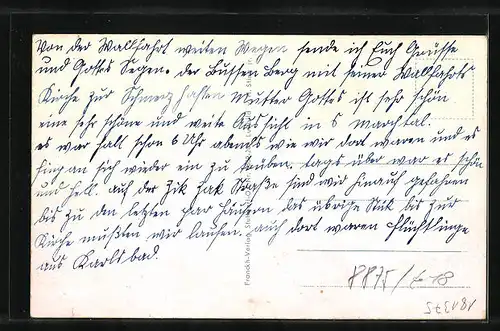 Von der Wallfahrt weiten Wegen sende ich Euch Grüsse
und Gottes Segen. der Bussen berg mit seiner Wallfahrts
Kirche zur Schmerz haften Mutter Gottes ist sehr schön
eine sehr schöne und weite Aussicht ins Marchtal.
es war halt schon 6 Uhr abends wie wir dort waren und es
fing an sich wieder ein zu trüben. tags über war es schön
und hell. auf der Zik zak Straße sind wir hinauf gefahren
bis zu den letzten par Häusern, das übrige Stük bis zur
Kirche mußten wir laufen. auch dort waren Flüchtlinge
aus Karlsbad.
Franckh-Verlag Stuttgart
8875/6-18
181375